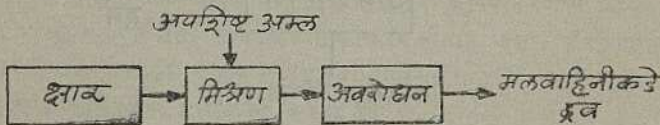 अपशिष्ट अम्ल
क्षार
मिश्रण
अवरोधन
मलवाहिनीकडे
द्रव